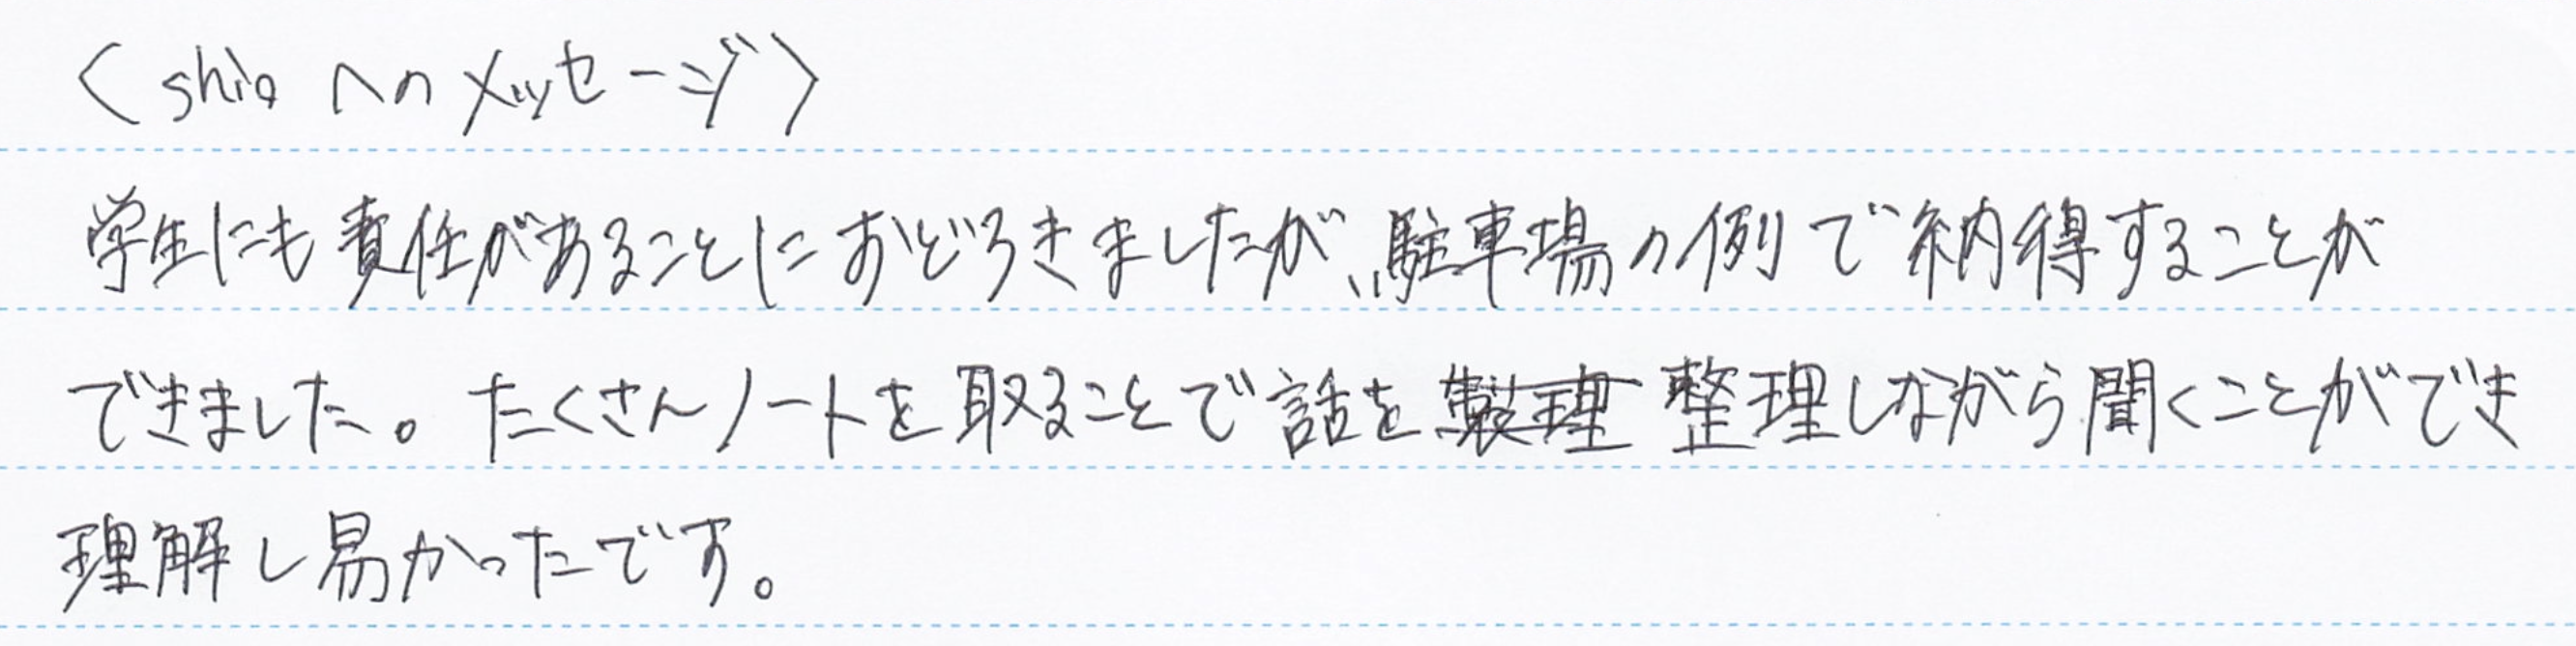 〈shioへのメッセージ〉
学生にも責任があることにおどろきましたが、駐車場の例で納得することが
できました。たくさんノートを取ることで話を製理整理しながら聞くことができ
理解し易かったです。